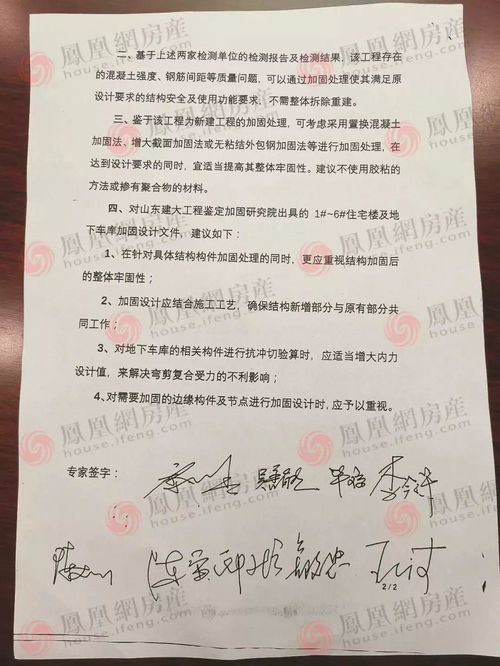 二、基于上述两家检测单位的检测报告及检测结果，该工程存在
的混凝土强度、钢筋间距等质量问题，可以通过加固处理使其满足原
设计要求的结构安全及使用功能要求，不需整体拆除重建。
三、鉴于该工程为新建工程的加固处理，可考虑采用置换混凝土
加固法、增大截面加固法或无粘结外包钢加固法等进行加固处理，在
达到设计要求的同时，宜适当提高其整体牢固性。建议不使用胶粘的
方法或掺有聚合物的材料。
四、对山东建大工程鉴定加固研究院出具的 1#~6#住宅楼及地
下车库加固设计文件，建议如下：
1、在针对具体结构构件加固处理的同时，更应重视结构加固后
的整体牢固性；
2、加固设计应结合施工工艺，确保结构新增部分与原有部分共
同工作；
3、对地下车库的相关构件进行抗冲切验算时，应适当增大内力
设计值，来解决弯剪复合受力的不利影响；
4、对需要加固的边缘构件及节点进行加固设计时，应予以重视。
专家签字：
2/2
鳳凰網房産
house.ifeng.com